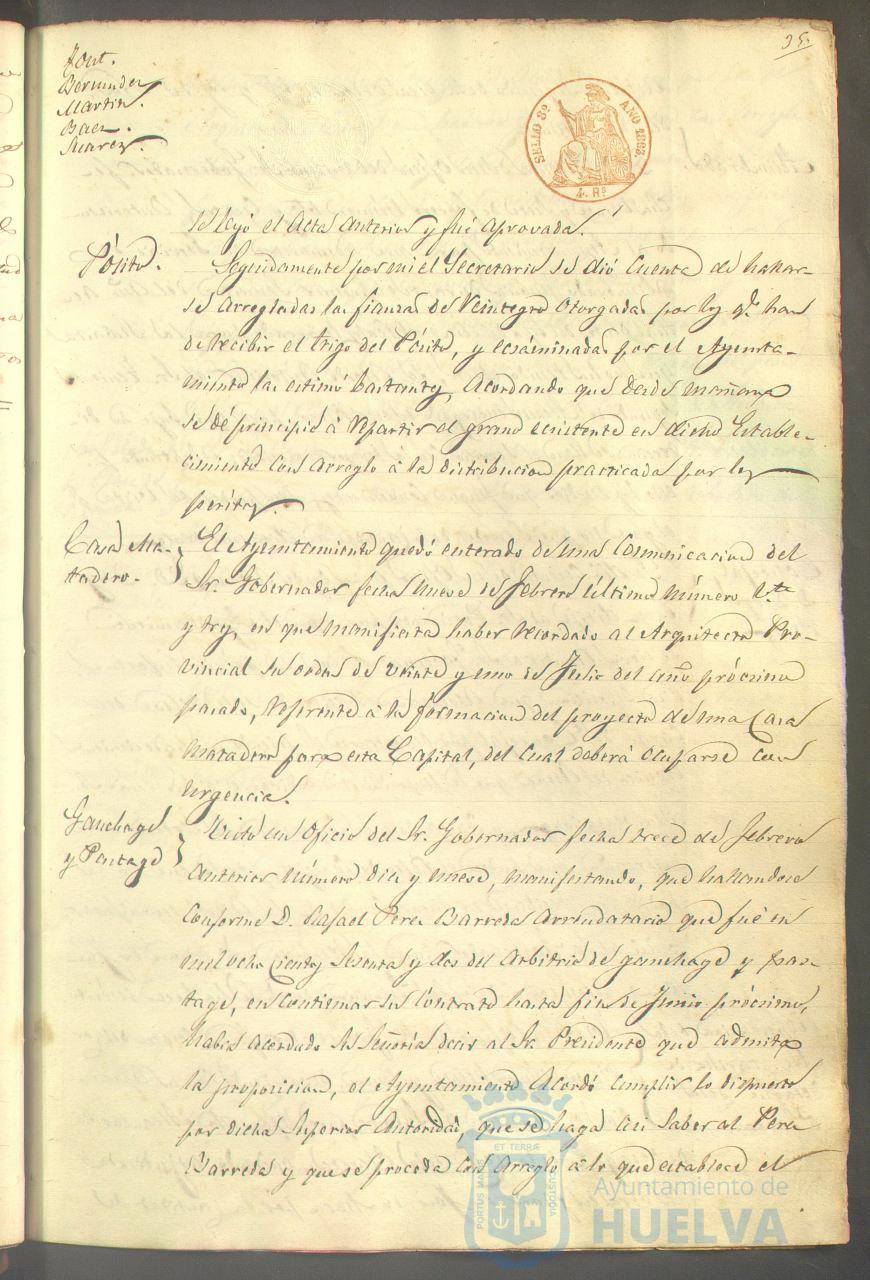 35.
Font.
Bermudez
Martin.
Baez.
Suarez.
SELLO 8º AÑO 1863.
4 Rs
se leyó el Acta anterior y fué aprovada.
Pósito.
Seguidamente por mi el Secretario se dió cuenta de hallar-
se arregladas las fianzas de reintegro otorgadas por los qe. han
de recibir el trigo del Pósito, y ecsaminadas por el Ayunta-
miento las estimó bastantes, acordando que desde mañana
se dé principio á repartir el grano ecsistente en dicho Estable-
cimiento con arreglo á la distribucion practicada por los
peritos.
Casa Ma-
tadero.
El Ayuntamiento quedó enterado de una comunicacion del
Sr. Gobernador fecha nueve de Febrero último número vte
y tres, en que manifiesta haber recordado al Arquitecto Pro-
vincial su orden de veinte y uno de Julio del año prócsimo
pasado, referente á la formacion del proyecto de una Casa
matadero para esta Capital, del cual deberá ocuparse con
urgencia.
Ganchage
y Pontage
Visto un oficio del Sr. Gobernador fecha trece de Febrero
anterior número diez y nueve, manifestando, que hallandose
conforme D. Rafael Perez Barreda arrendatario que fué en
mil ocho cientos sesenta y dos del arbitrio de ganchage y pon-
tage, en continuar su contrato hasta fin de Junio prócsimo,
habia acordado Su Señoría decir al Sr. Presidente que admita
la proposicion, el Ayuntamiento acordó cumplir lo dispuesto
por dicha Superior Autoridad, que se haga asi saber al Perez
Barreda y que se proceda con arreglo á lo que establece el
PORTUS MARIS ET TERRÆ CUSTODIA
Ayuntamiento de
HUELVA